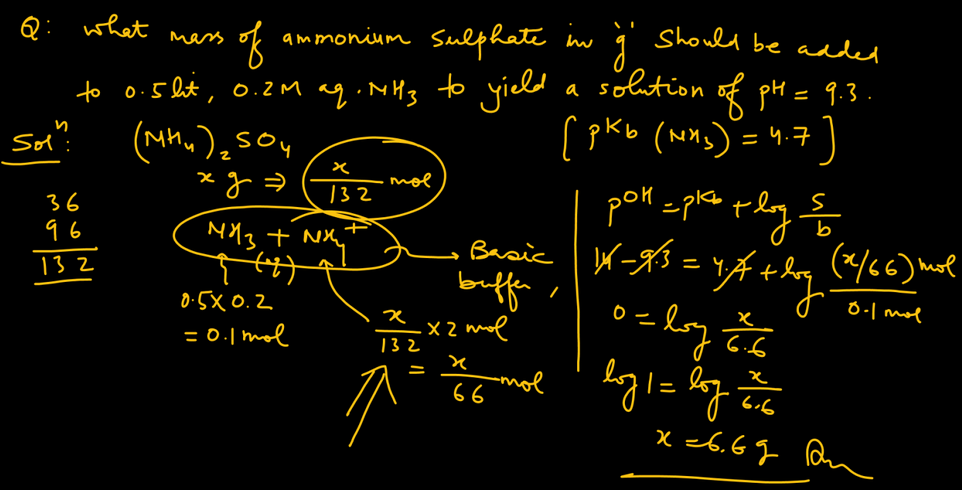 Q: what mass of ammonium sulphate in 'g' should be added
to 0.5 lit, 0.2M aq. NH3 to yield a solution of pH = 9.3.
[ pKb (NH3) = 4.7 ]
Solⁿ: (NH4)2SO4
x g ⇒ x/132 mol
36
96
132
NH3 + NH4+ → Basic buffer,
(aq)
0.5 x 0.2
= 0.1 mol
x/132 × 2 mol
= x/66 mol
pOH = pKb + log s/b
14 - 9.3 = 4.7 + log (x/66) mol / 0.1 mol
0 = log x/6.6
log 1 = log x/6.6
x = 6.6 g Ans